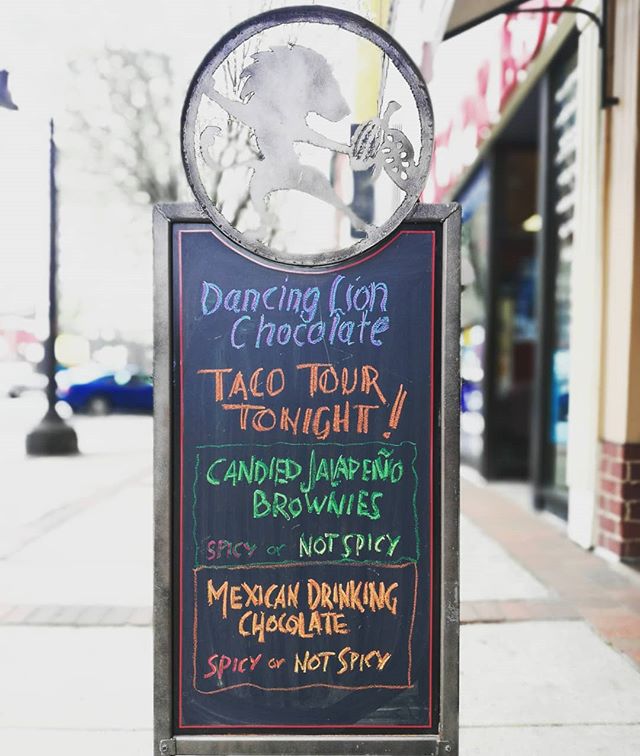 Dancing Lion
Chocolate
TACO TOUR
TONIGHT!
CANDIED JALAPEÑO
BROWNIES
SPICY or NOT SPICY
MEXICAN DRINKING
CHOCOLATE
SPICY or NOT SPICY